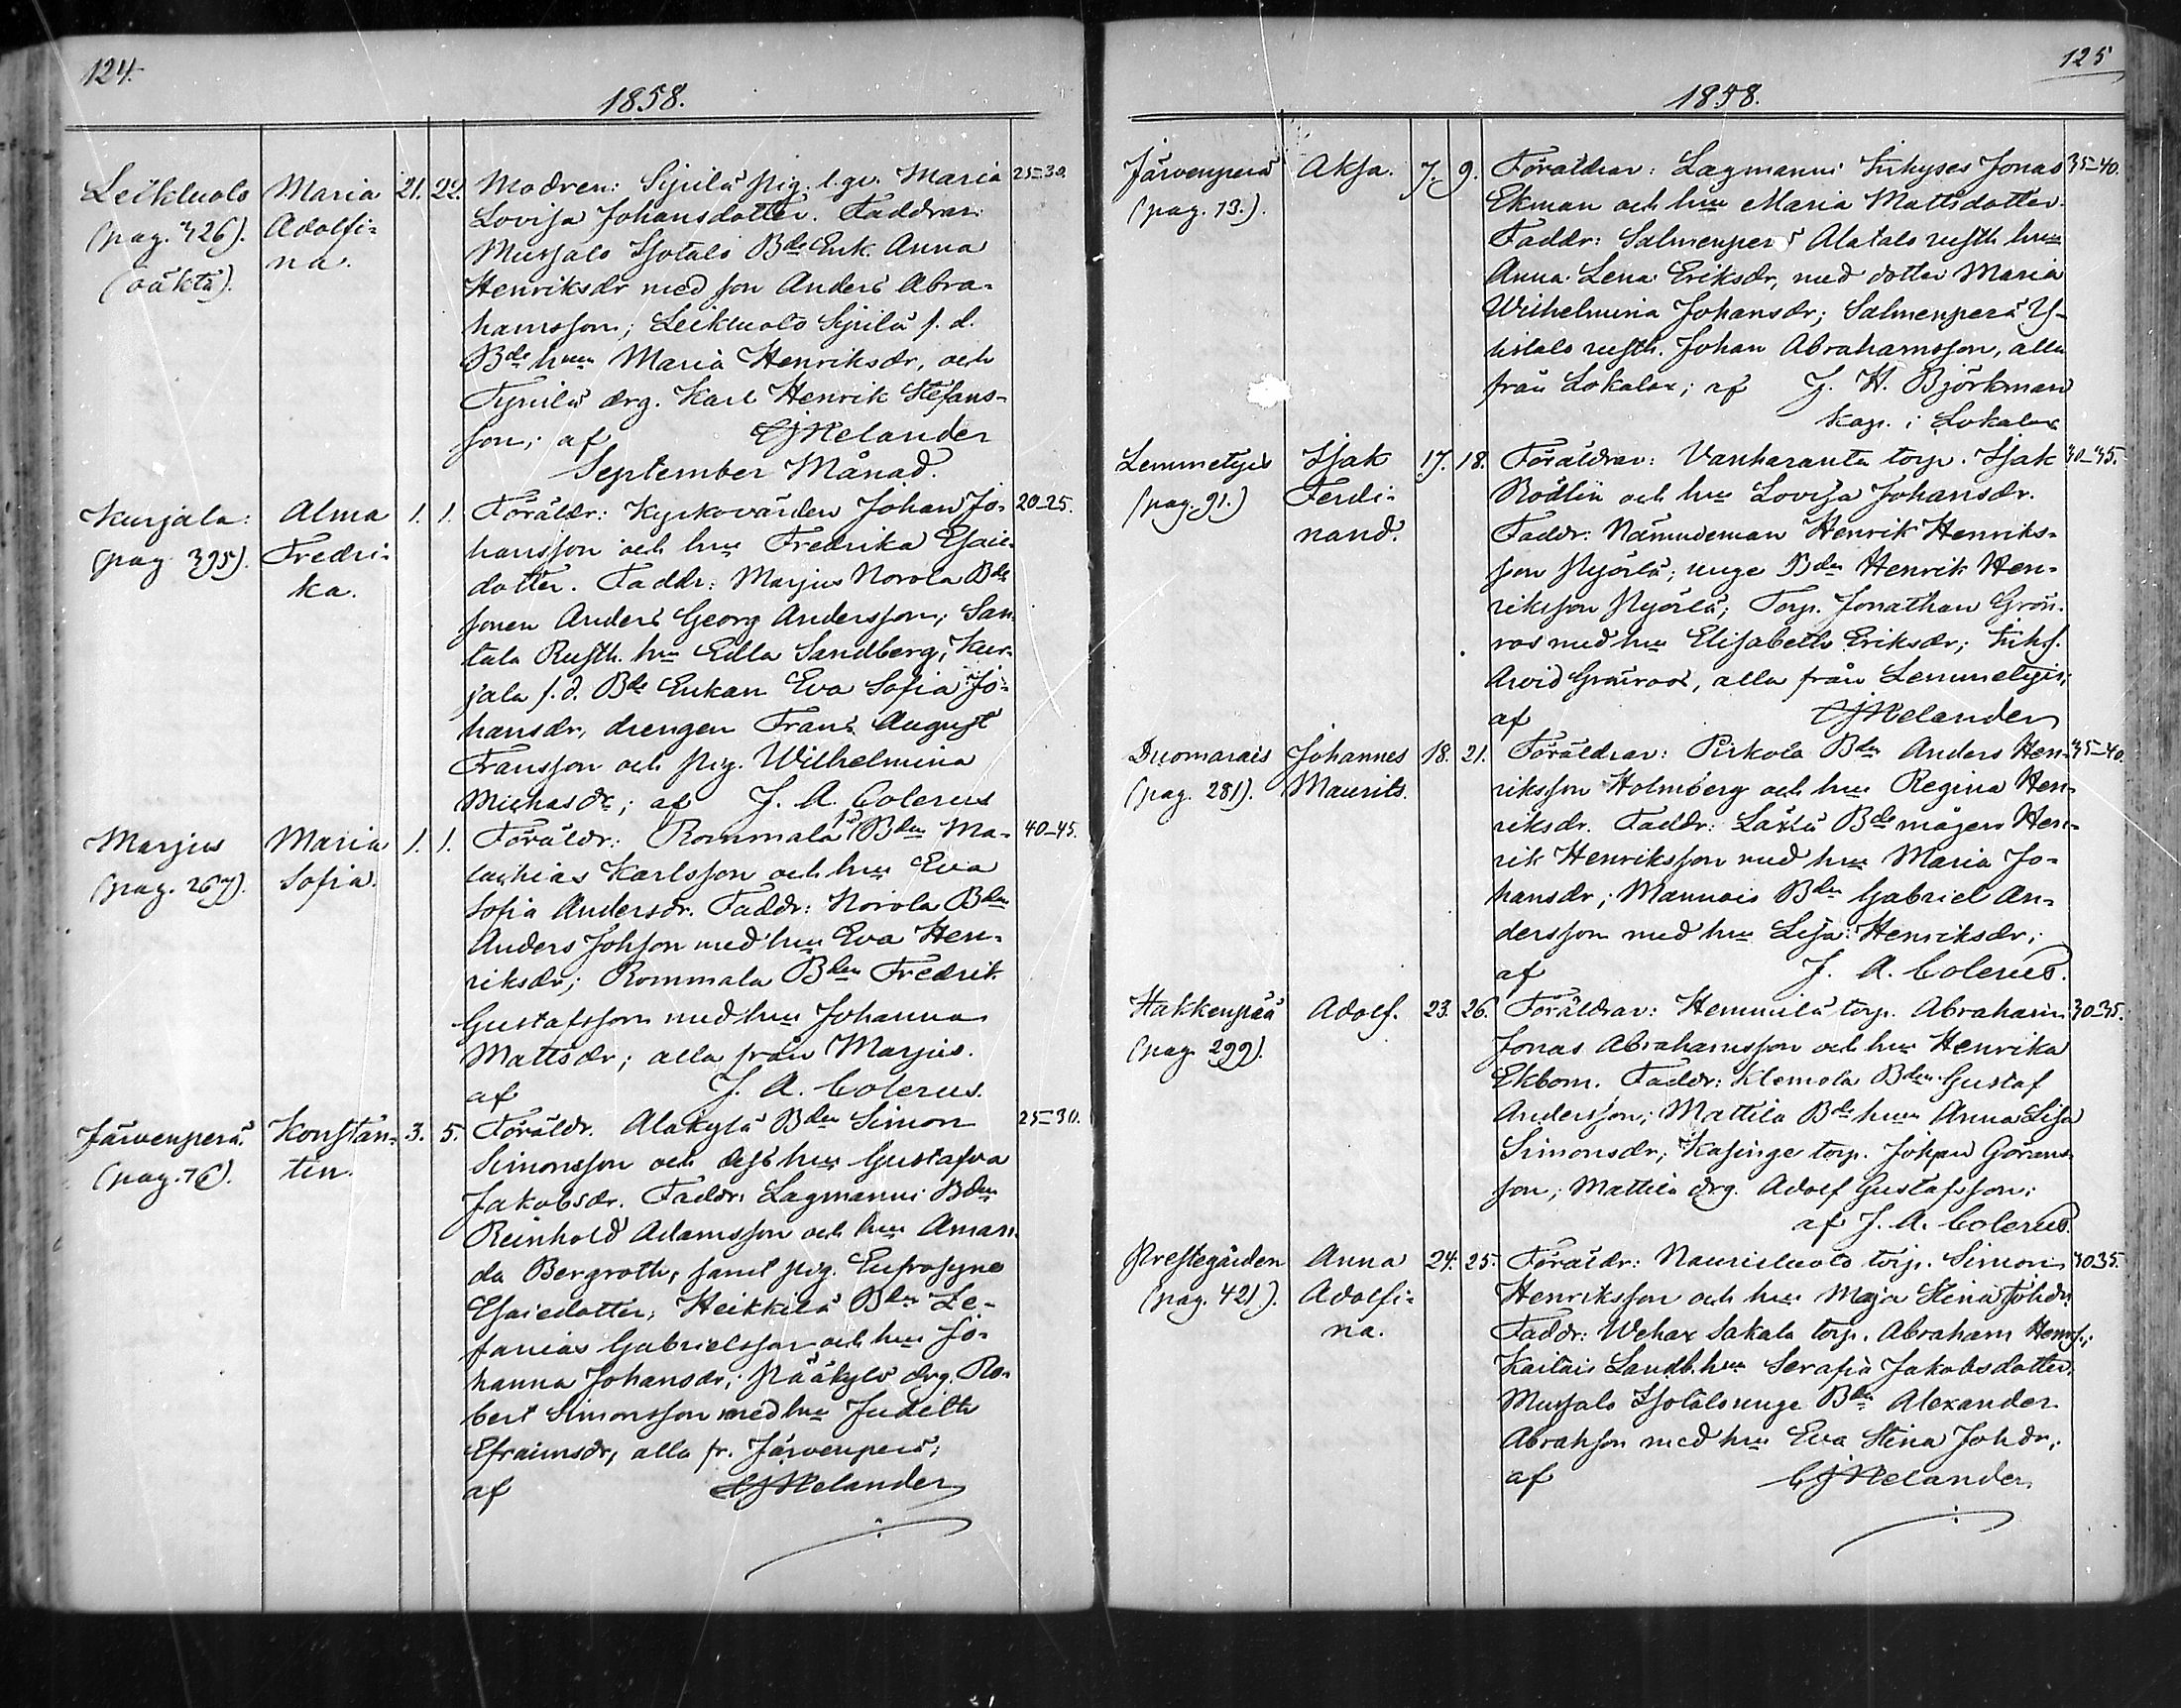 124.
1858.
Leikluoto Maria 21. 22. Modren: Syrilä pig. l. gv. Maria 25-30.
(pag. 426). Adolfi- Lovisa Johansdotter. Faddrar:
(oäkta). na. Mussalo Isotalo Bde Enk. Anna
Henriksdr med son Anders Abra-
hamsson; Leikluoto Syrilä f. d.
Bde hun Maria Henriksdr, och
Syrilä drg. Karl Henrik Stefans-
son; af CJ Helander
September Månad.
Kurjala: Alma 1. 1. Föräldr: Kyrkovärden Johan Jo- 20-25.
(pag 395). Fredri- hansson och hu Fredrika Esaie
ka. dotter. Faddr: Marjus Norola Bde
sonen Anders Georg Andersson; San-
tala Rusth. hu Edla Sandberg; Kur-
jala f. d. Bde Enkan Eva Sofia Jo-
hansdr, drengen Frans August
Fransson och pig. Wilhelmina
Michasdr; af J. A. Colerus
Marjus Maria 1. 1. Föräldr: Rommala Bdn Ma- 40-45.
(pag. 267). Sofia. lachias Karlsson och hu Eva
Sofia Andersdr. Faddr: Norola Bdn
Anders Johsson med hu Eva Hen-
riksdr; Rommala Bdn Fredrik
Gustafsson med hu Johanna
Mattsdr; alla från Marjus.
af J. A. Colerus.
Järvenperä. Konstan- 3. 5. Föräldr. Alakylä Bdn Simon 25-30.
(pag. 76). tin. Simonsson och dess hu Gustafva
Jakobsdr. Faddr: Lagmanni Bdn
Reinhold Adamsson och hu Aman-
da Bergroth, samt pig. Eufrosyne
Esaiedotter; Heikkilä Bdn Ze-
fanias Gabrielsson och hu Jo-
hanna Johansdr; Pääkylä drg. Ro-
bert Simonsson med hu Judith
Efraimsdr, alla fr. Järvenperä;
af CJ Helander
125
1858.
Järvenperä Aksa. 7. 9. Föräldrar: Lagmanni Inhyses Jonas 35-40.
(pag. 73.). Ekman och hu Maria Mattsdotter.
Faddr: Salmenperä Alatalo rusth. hu
Anna Lena Eriksdr, med dotter Maria
Wilhelmina Johansdr; Salmenperä Y-
listalo rusth. Johan Abrahamsson, alla
från Lokalax; af J. H. Björkman
Kap. i Lokalax
Lemmetyis Isak 17. 18. Föräldrar: Vanharanta torp. Isak 30-35.
(pag. 91.) Ferdi- Rödlin och hu Lovisa Johansdr.
nand. Faddr: Nämndeman Henrik Henriks-
son Pyörlä; unge Bdn Henrik Hen-
riksson Pyörlä; Torp. Jonathan Grön-
ros med hu Elisabeth Eriksdr; Inhs.
Arvid Grönroos, alla från Lemmetyis;
af CJ Helander
Duomarais Johannes 18. 21. Föräldrar: Pirkola Bdn Anders Hen- 35-40.
(pag. 281). Maurits. riksson Holmberg och hu Regina Hen-
riksdr. Faddr: Laxlä Bde mågen Hen-
rik Henriksson med hu Maria Jo-
hansdr; Mannois Bdn Gabriel An-
dersson med hu Lisa Henriksdr;
af J. A. Colerus.
Hakkenpää Adolf. 23. 26. Föräldrar: Hemmilä torp. Abraham 30-35.
(pag. 299). Jonas Abrahamsson och hu Henrika
Ekbom. Faddr: Klemola Bdn Gustaf
Andersson; Mattila Bde hun Anna Lisa
Simonsdr; Kasinge torp. Johan Görans-
son; Mattila drg. Adolf Gustafsson;
af J. A. Colerus.
Prestegården Anna 24. 25. Föräldr: Naurisluoto torp. Simon 30-35.
(pag. 421). Adolfi- Henriksson och hu Maja Stina Johdr.
na. Faddr: Wehax Sakala torp. Abraham Henrs.;
Kaitais Landb. hu Serafia Jakobsdotter;
Mussalo Isotalo unge Bdn Alexander
Abrahsson med hu Eva Stina Johdr;
af CJ Helander